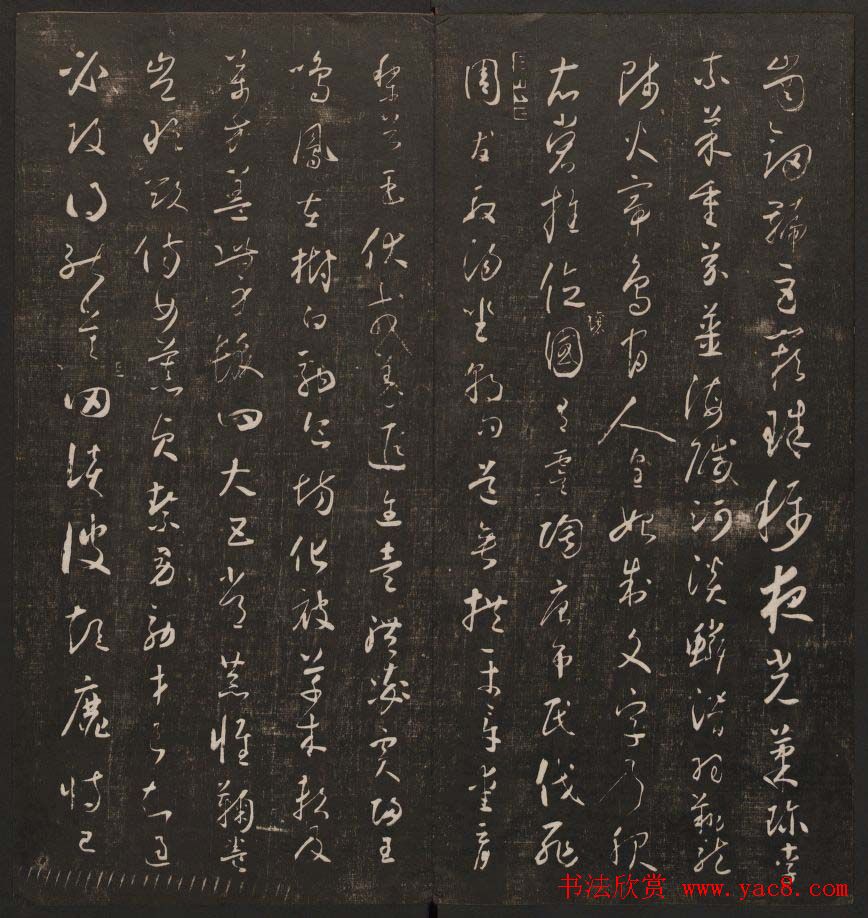 崗劍號巨闕珠稱夜光菓珍李
柰菜重芥薑海鹹河淡鱗潛羽翔龍
師火帝鳥官人皇始制文字乃服
衣裳推位讓國有虞陶唐弔民伐罪
周發殷湯坐朝問道垂拱平章愛育
黎首臣伏戎羌遐邇壹體率賓歸王
鳴鳳在樹白駒食場化被草木賴及
萬方蓋此身髮四大五常恭惟鞠養
豈敢毀傷女慕貞絜男效才良知過
必改得能莫忘罔談彼短靡恃己
书法欣赏 www.yac8.com